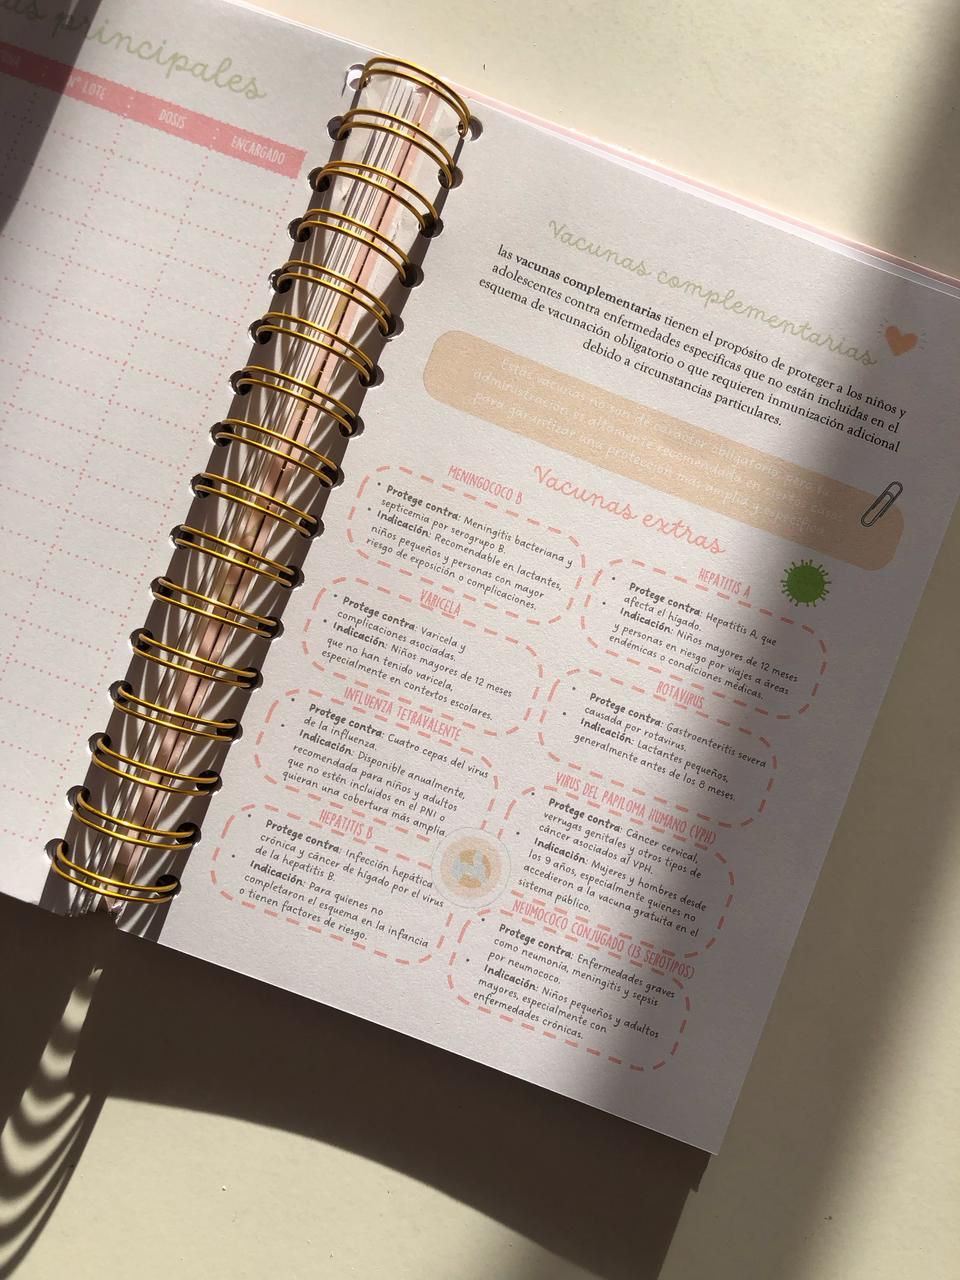 principales
N° LOTE
DOSIS
ENCARGADO
Vacunas complementarias
las vacunas complementarias tienen el propósito de proteger a los niños y
adolescentes contra enfermedades específicas que no están incluidas en el
esquema de vacunación obligatorio o que requieren inmunización adicional
debido a circunstancias particulares.
Estas vacunas no son de carácter obligatorio, pero
administración es altamente recomendada en ciertos
para garantizar una protección más amplia
Vacunas extras
MENINGOCOCO B
• Protege contra: Meningitis bacteriana y
septicemia por serogrupo B.
• Indicación: Recomendable en lactantes,
niños pequeños y personas con mayor
riesgo de exposición o complicaciones.
VARICELA
• Protege contra: Varicela y
complicaciones asociadas.
• Indicación: Niños mayores de 12 meses
que no han tenido varicela,
especialmente en contextos escolares.
INFLUENZA TETRAVALENTE
• Protege contra: Cuatro cepas del virus
de la influenza.
• Indicación: Disponible anualmente,
recomendada para niños y adultos
que no estén incluidos en el PNI o
quieran una cobertura más amplia.
HEPATITIS B
• Protege contra: Infección hepática
crónica y cáncer de hígado por el virus
de la hepatitis B.
• Indicación: Para quienes no
completaron el esquema en la infancia
o tienen factores de riesgo.
HEPATITIS A
• Protege contra: Hepatitis A, que
afecta el hígado.
• Indicación: Niños mayores de 12 meses
y personas en riesgo por viajes a áreas
endémicas o condiciones médicas.
ROTAVIRUS
• Protege contra: Gastroenteritis severa
causada por rotavirus.
• Indicación: Lactantes pequeños,
generalmente antes de los 8 meses.
VIRUS DEL PAPILOMA HUMANO (VPH)
• Protege contra: Cáncer cervical,
verrugas genitales y otros tipos de
cáncer asociados al VPH.
• Indicación: Mujeres y hombres desde
los 9 años, especialmente quienes no
accedieron a la vacuna gratuita en el
sistema público.
NEUMOCOCO CONJUGADO (13 SEROTIPOS)
• Protege contra: Enfermedades graves
como neumonía, meningitis y sepsis
por neumococo.
• Indicación: Niños pequeños y adultos
mayores, especialmente con
enfermedades crónicas.